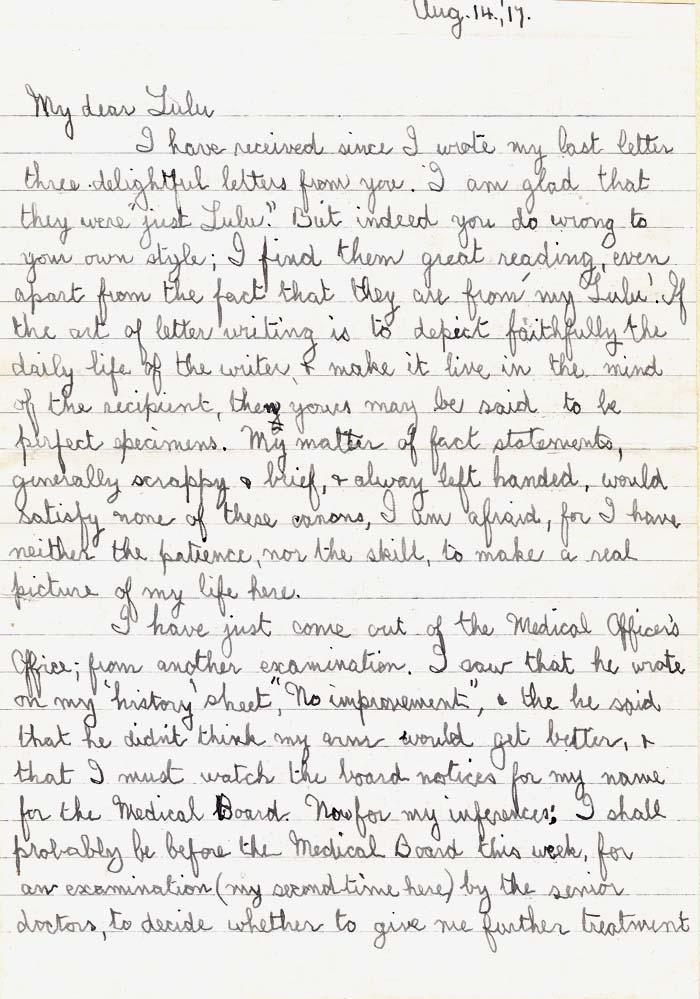 Aug. 14, '17.
My dear Lulu
I have received since I wrote my last letter
three delightful letters from you. I am glad that
they were "just Lulu." But indeed you do wrong to
your own style; I find them great reading, even
apart from the fact that they are from 'my Lulu'. If
the art of letter writing is to depict faithfully the
daily life of the writer, & make it live in the mind
of the recipient, then yours may be said to be
perfect specimens. My matter of fact statements,
generally scrappy & brief, & alway left handed, would
satisfy none of these canons, I am afraid, for I have
neither the patience, nor the skill, to make a real
picture of my life here.
I have just come out of the Medical Officer's
Office; from another examination. I saw that he wrote
on my 'history' sheet, "No improvement", & the he said
that he didn't think my arm would get better, &
that I must watch the board notices for my name
for the Medical Board. Now for my inferences; I shall
probably be before the Medical Board this week, for
an examination (my second time here) by the senior
doctors, to decide whether to give me further treatment